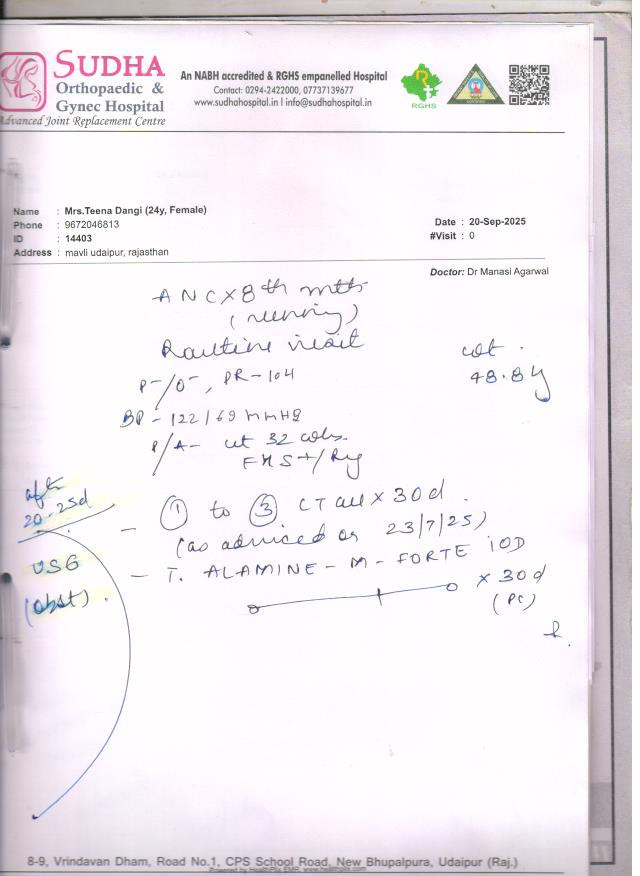 SUDHA
Orthopaedic &
Gynec Hospital
Advanced Joint Replacement Centre
An NABH accredited & RGHS empanelled Hospital
Contact: 0294-2422000, 07737139677
www.sudhahospital.in | info@sudhahospital.in
RGHS
Name : Mrs.Teena Dangi (24y, Female)
Phone : 9672046813
ID : 14403
Address : mavli udaipur, rajasthan
Date : 20-Sep-2025
#Visit : 0
Doctor: Dr Manasi Agarwal
ANC x 8th mth
(running)
Routine visit
wt.
48.8 kg
P-/O-, PR-104
BP - 122/69 mmHg
P/A- ut 32 wks.
FHS+/Reg
aft
20-25d
USG
(obst).
- ① to ③ CT all x 30d.
(as adviced on 23/7/25)
- T. ALAMINE-M-FORTE 1OD
x 30d
(PC)
8-9, Vrindavan Dham, Road No.1, CPS School Road, New Bhupalpura, Udaipur (Raj.)
Powered by HealthPlix EMR. www.healthplix.com